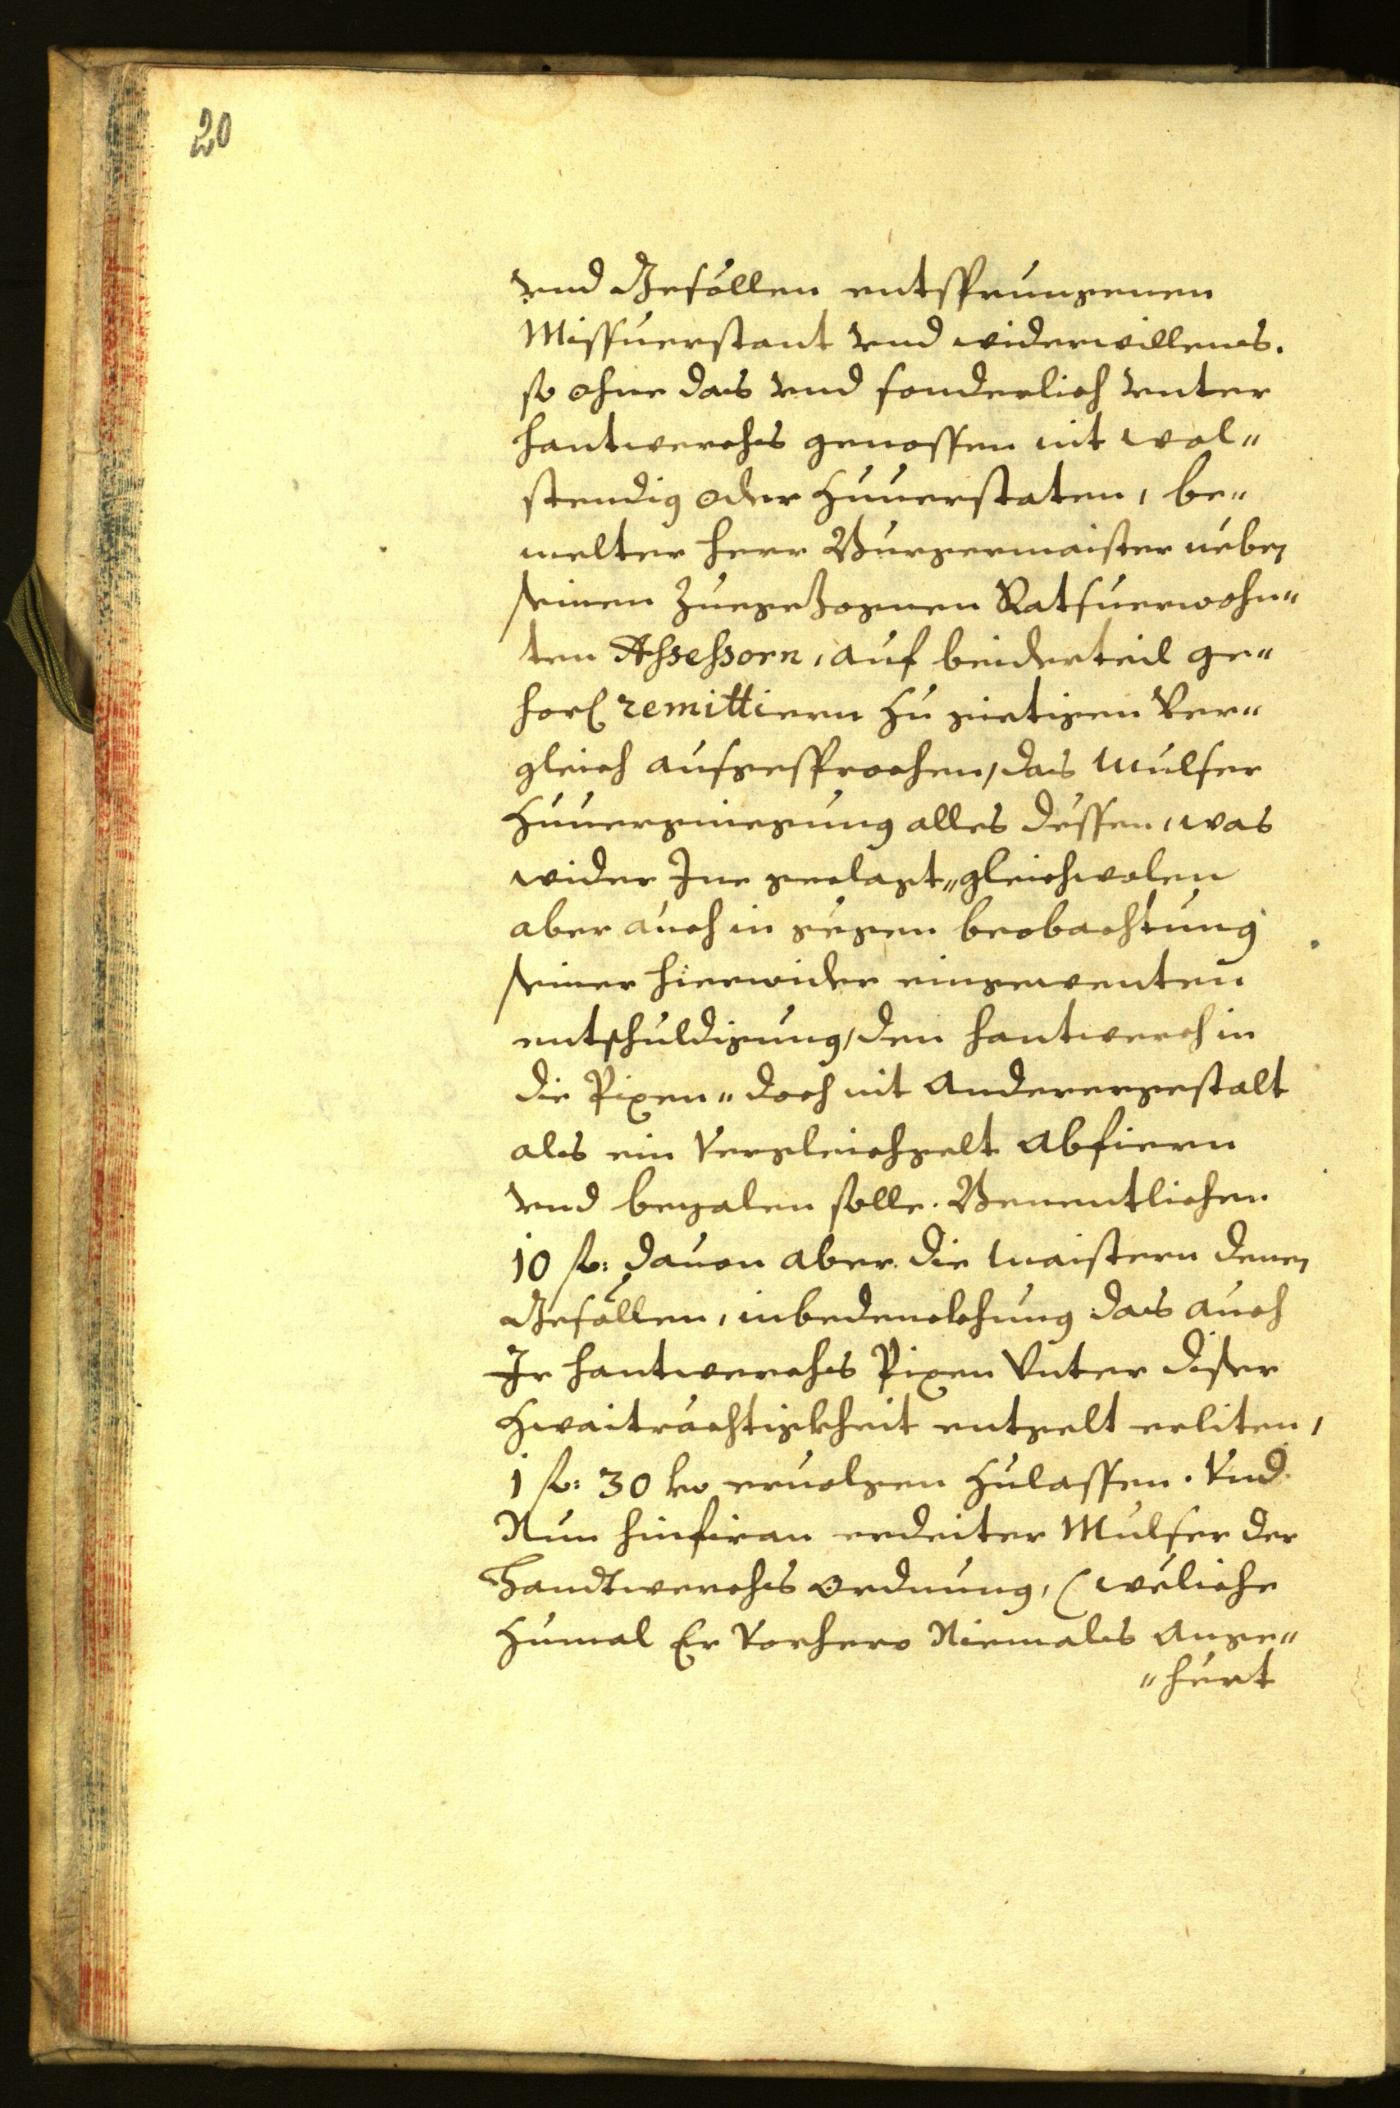 20
vnd Gesöllen entsprungenen
Missuerstant vnd widerwillens.
so ohne das vnd sonderlich vnter
hantwerchs genossen nit wol„
stendig oder zuuerstaten, be„
melter herr Burgermaister neben
seinen zuegezognen Ratsuerwohn„
ten Assessorn, auf beiderteil ge„
remittiern zu gietigen Ver„
gleich aufgesprochen, das Mulser
zuuergniegung alles dessen, was
wider Ine geclagt„ gleichwolen
aber auch in gegen beobachtung
seiner hierwider eingewenten
entschuldigung, den hantwerch in
die Pixen„ doch nit Anderergestalt
als ein Vergleichgelt Abfiern
vnd bezalen solle. Benentlichen
10 fl: dauon aber die Maistern denen
Gesöllen, in bedenckhung das auch
Ir hantwerchs Pixen Vnter diser
zwaiträchtigkheit entgelt erliten,
1 fl: 30 kr eruolgen zulassen. Vnd
Nun hinfiran erdeiter Mulser der
Handtwerchs Ordnung, (weliche
zumal Er Vorhero Niemals Ange„
„hört